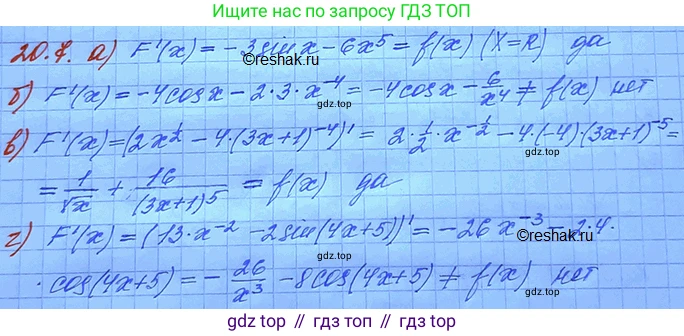 Ищите нас по запросу ГДЗ ТОП
20.7. а) F'(x) = -3sin x - 6x⁵ = f(x) (X=R) да
©reshak.ru
gdz.top
б) F'(x) = -4cos x - 2·3·x⁻⁴ = -4cos x - 6/x⁴ ≠ f(x) нет
gdz.top
в) F'(x) = (2x^(1/2) - 4·(3x+1)⁻⁴)' = 2·1/2·x^(-1/2) - 4·(-4)·(3x+1)⁻⁵ =
gdz.top
= 1/√x + 16/(3x+1)⁵ = f(x) да
gdz.top
г) F'(x) = (13·x⁻² - 2sin(4x+5))' = -26x⁻³ - 2·4·
©reshak.ru
gdz.top
·cos(4x+5) = -26/x³ - 8cos(4x+5) ≠ f(x) нет
gdz.top // гдз.топ // gdz.top // гдз.топ // gdz.top